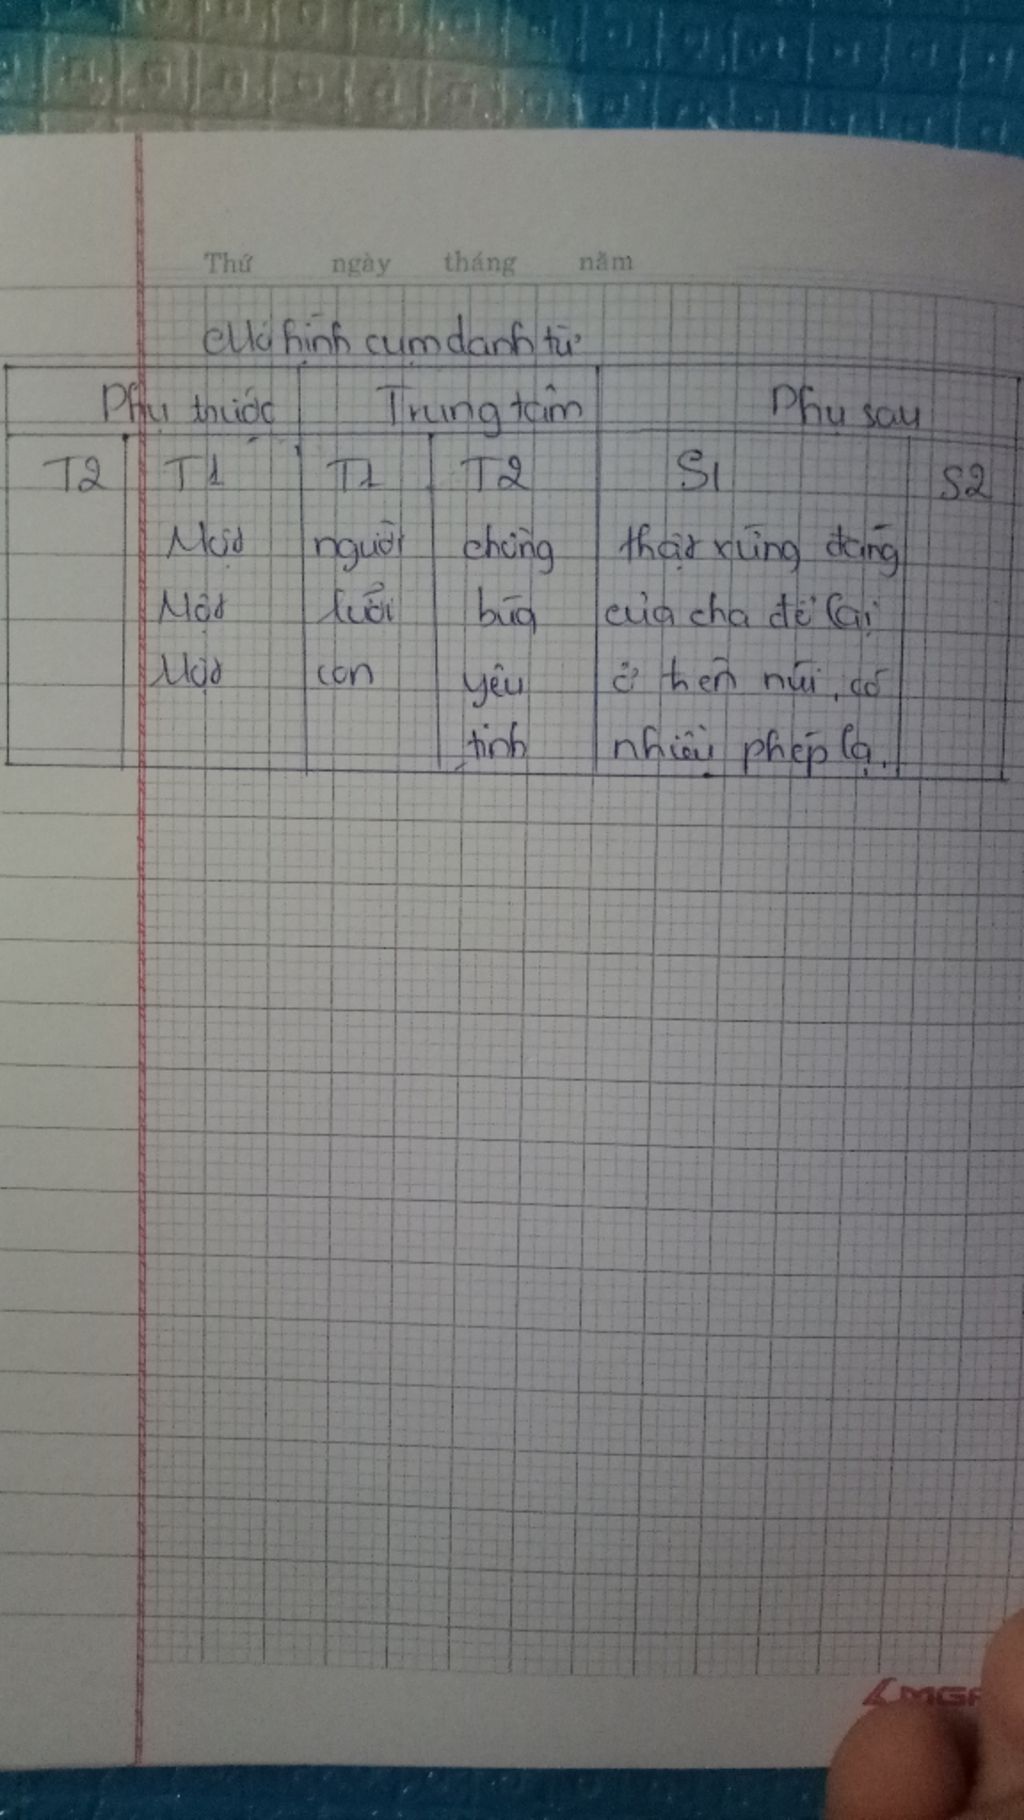 Thứ ngày tháng năm
Mô hình cụm danh từ
Phụ thước Trung tâm Phụ sau
T2 T1 T1 T2 S1 S2
Một người chồng thật xứng đáng
Một lưỡi búa của cha để lại
Một con yêu ở trên núi, có
tinh nhiều phép lạ.